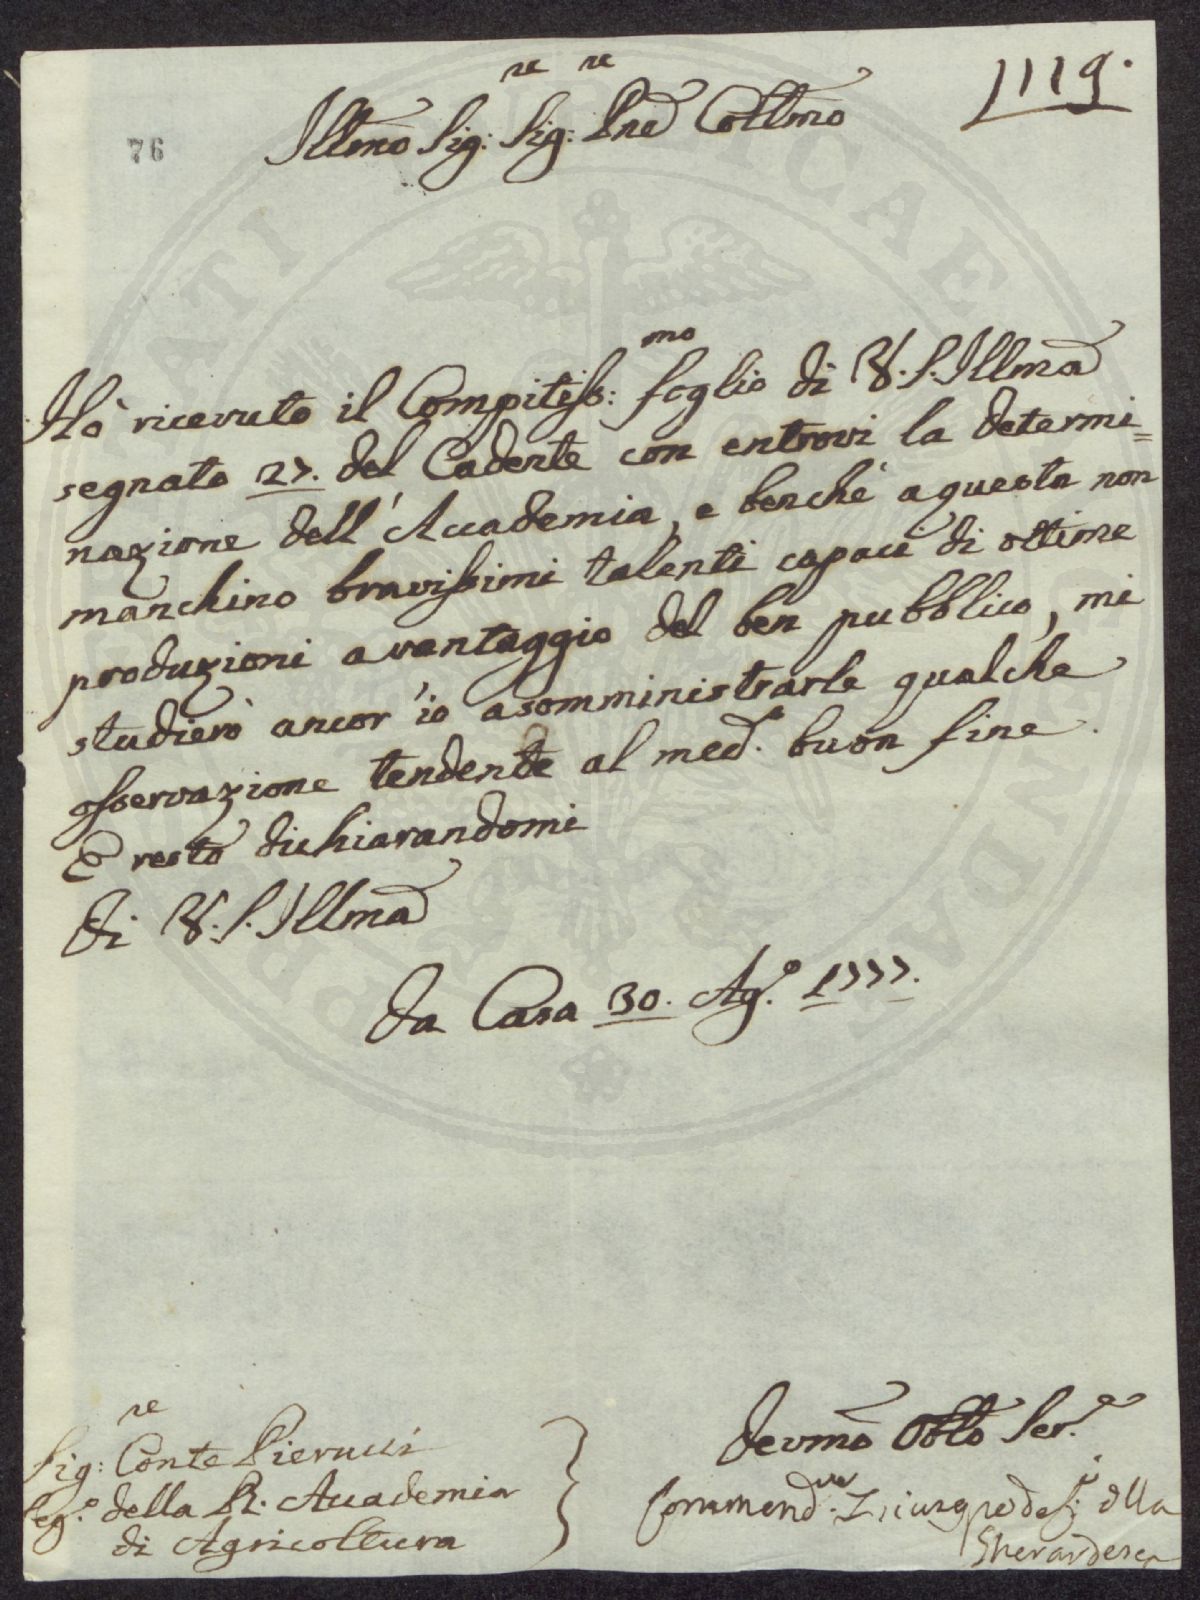 1119.
76
Illmo Sig: re Sig: re Pne Collmo
Hò ricevuto il Compitiss: mo foglio di V. S. Illma
segnato 27. del Cadente con entrovi la determi=
nazione dell'Accademia, e benchè a questa non
manchino bravissimi talenti capaci di ottime
produzioni a vantaggio del ben pubblico, mi
studierò ancor'io a somministrarle qualche
osservazione tendente al med.o buon fine.
E resto dichiarandomi
Di V. S. Illma
Da Casa 30. Ag.o 1777.
Sig: re Conte Pierucci
Seg.o della R. Accademia
di Agricoltura
Devmo Obblo Ser.e
Commend.
della
Gherardesca
PROBATI PUBLICAE